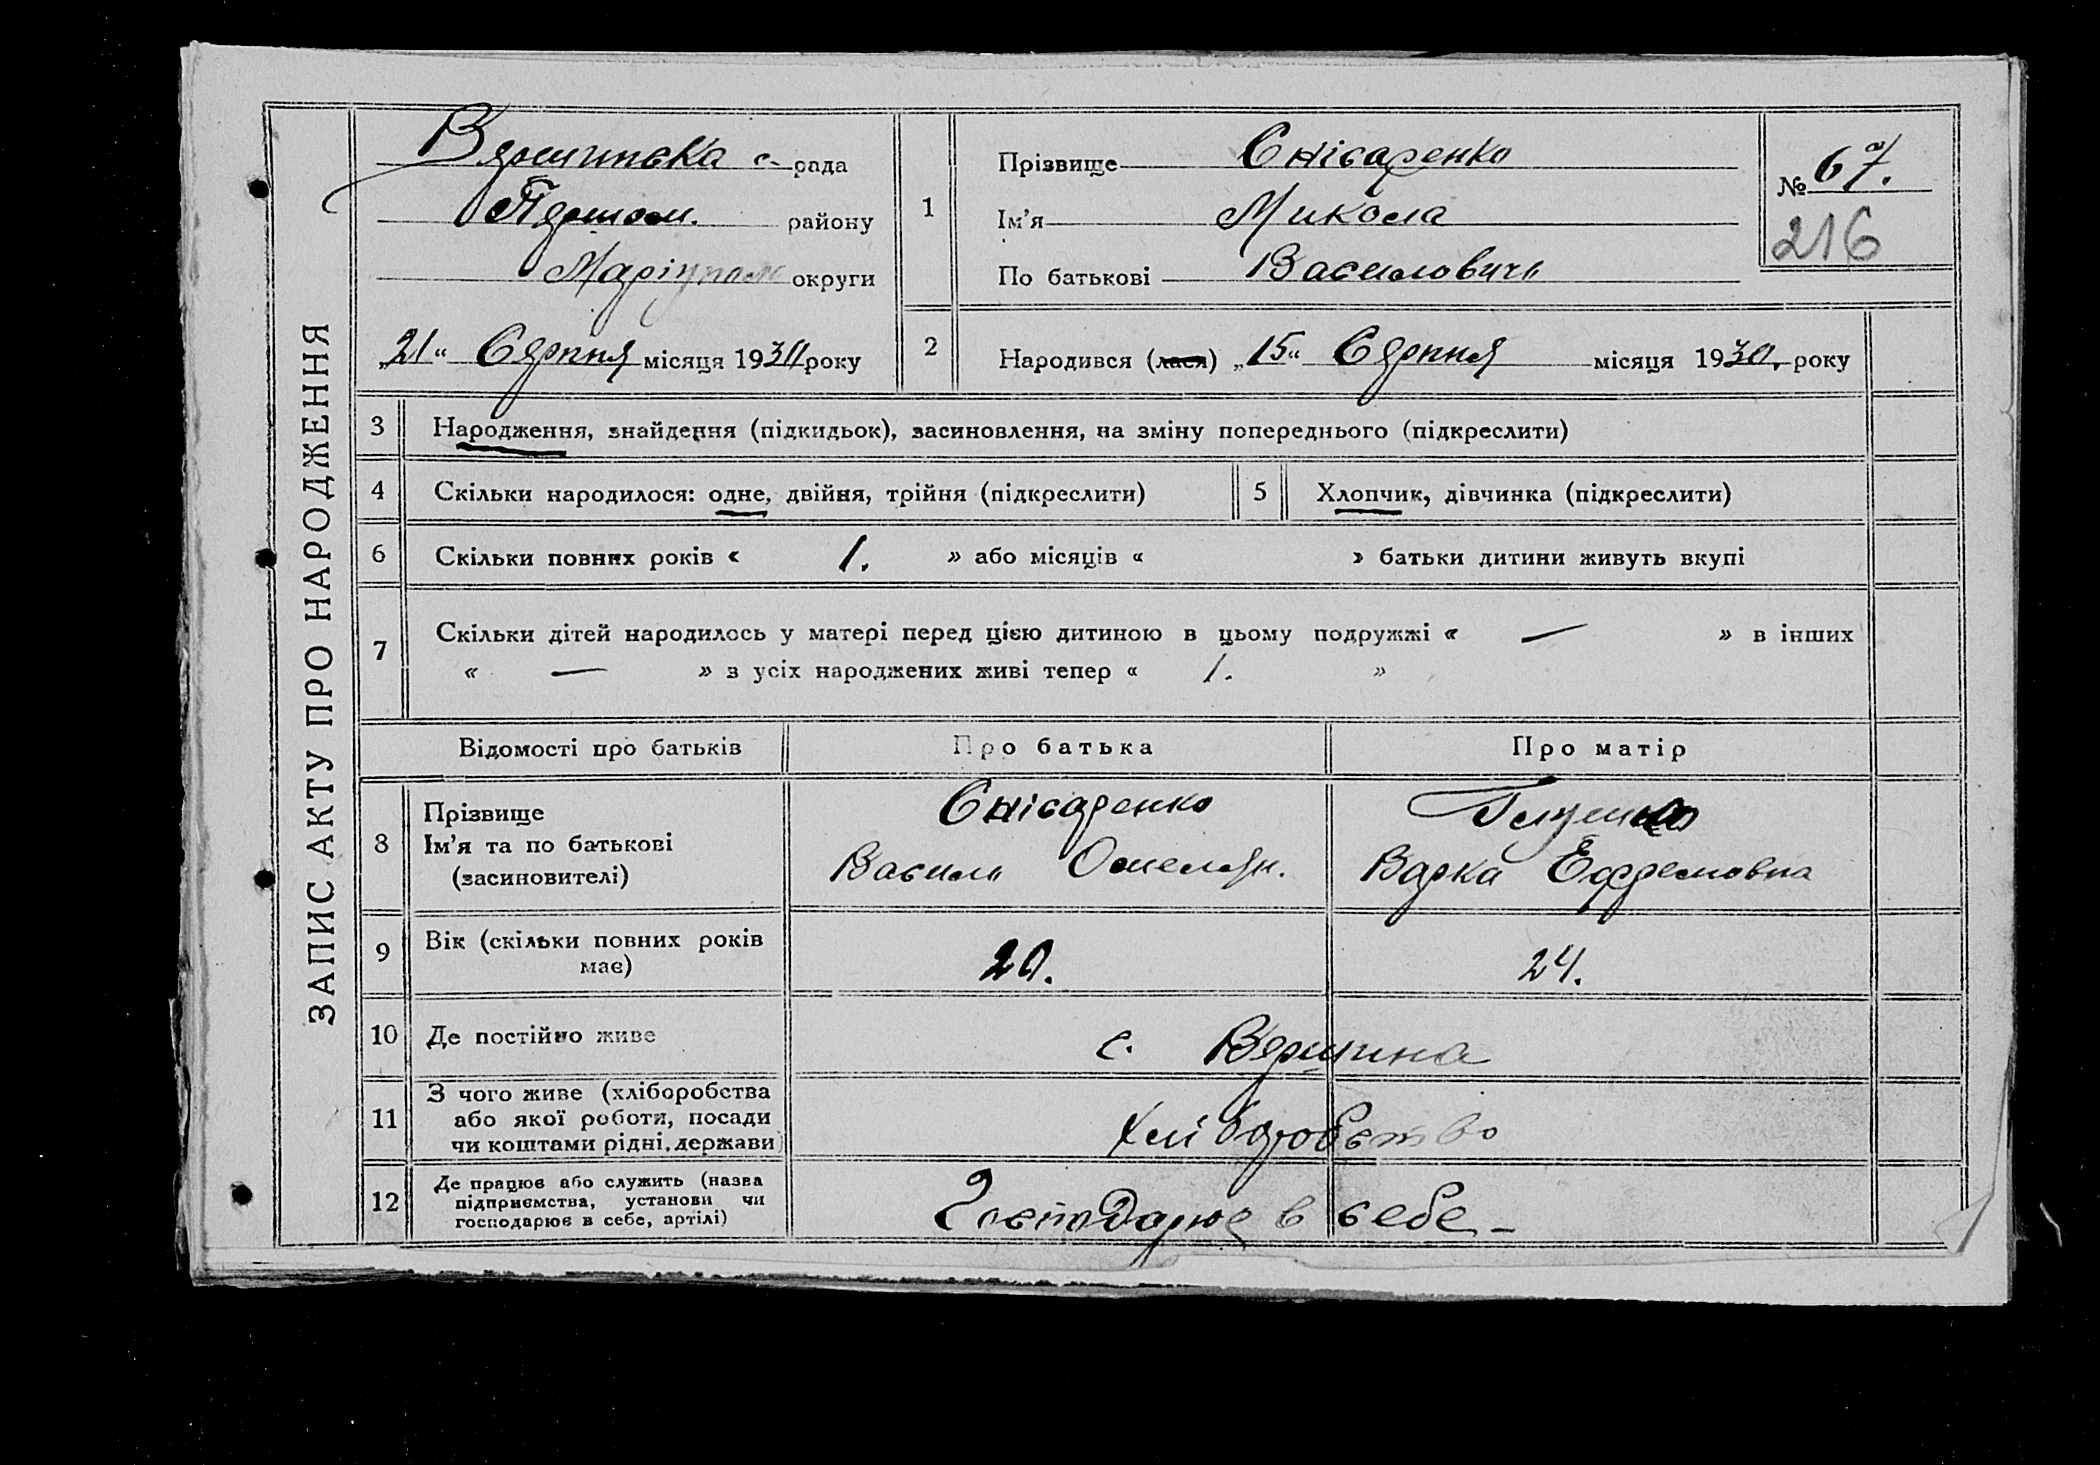 ЗАПИС АКТУ ПРО НАРОДЖЕННЯ
Вершинська с. рада
Першом. району
Маріупол округи
„21“ Серпня місяця 1930 року
1
Прізвище Снісаренко
Ім'я Микола
По батькові Василовичь
№ 67.
216
2
Народився (лася) „15“ Серпня місяця 1930. року
3 Народження, знайдення (підкидьок), засиновлення, на зміну попереднього (підкреслити)
4 Скільки народилося: одне, двійня, трійня (підкреслити)
5 Хлопчик, дівчинка (підкреслити)
6 Скільки повних років « 1. » або місяців « » батьки дитини живуть вкупі
7 Скільки дітей народилось у матері перед цією дитиною в цьому подружжі « — » в інших
« — » з усіх народжених живі тепер « 1. »
Відомості про батьків
Про батька
Про матір
8 Прізвище
Ім'я та по батькові
(засиновителі)
Снісаренко
Василь Омелян.
Варка Ефремовна
9 Вік (скільки повних років
має)
20.
24.
10 Де постійно живе
с. Вершина
11 З чого живе (хліборобства
або якої роботи, посади
чи коштами рідні, держави)
хліборобство
12 Де працює або служить (назва
підприємства, установи чи
господарює в себе, артілі)
Господарює в себе –